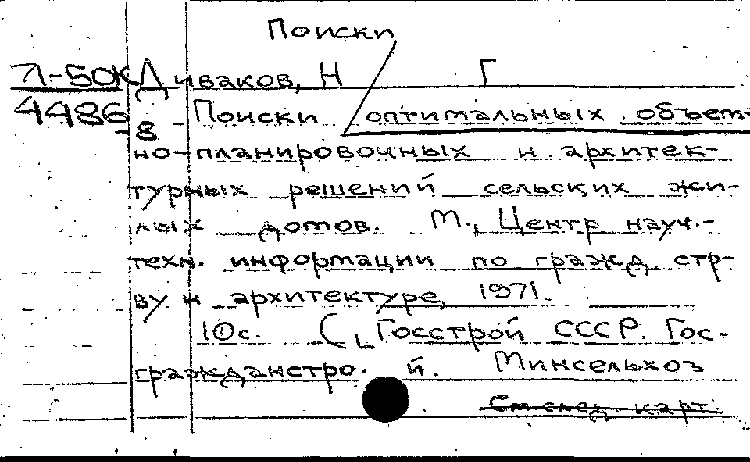 Поиски
Л-50К Диваков, Н Г
4486 Поиски оптимальных объем-
8
но-планировочных и архитек-
турных решений сельских жи-
лых домов. М., Центр науч.-
техн. информации по гражд. стр-
ву и архитектуре, 1971.
10с. (Госстрой СССР. Гос-
гражданстрой. Минсельхоз
См след. карт.